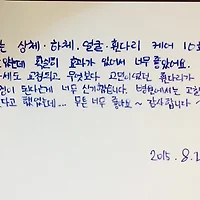 는 상체·하체·얼굴·휜다리 케어 10회
는데 확실히 효과가 있어서 너무 좋았어요.
세도 교정되고 무엇보다 고민이었던 휜다리가
된다는게 너무 신기했습니다. 병원에서는 교정
다고 했었는데... 무튼 너무 좋아요~ 감사합니다~
2015. 8. 2